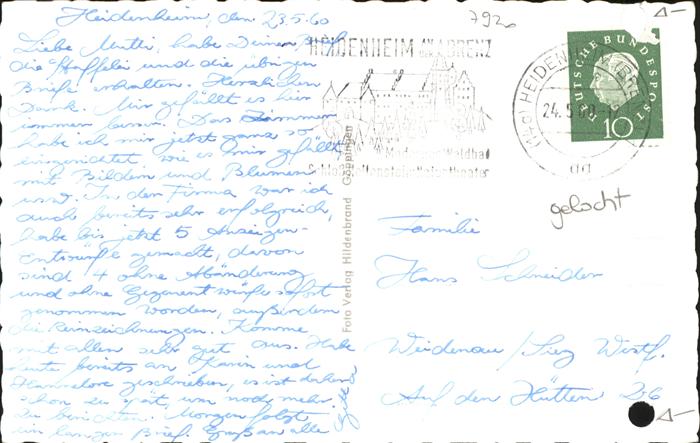 Heidenheim, den 23.5.60
Liebe Mutti, habe Deinen
die Staffelei und die übrigen
Briefe erhalten. Herzlichen
Dank. Mir gefällt es hier
immer besser. Das Zimmer
habe ich mir jetzt ganz so
eingerichtet wie es mir gefällt
mit Bildern und Blumen
usw. In der Firma war ich
auch bereits sehr erfolgreich,
habe bis jetzt 5 Anzeigen-
Entwürfe gemacht, davon
sind 4 ohne Abänderung
und ohne Gegenentwürfe sofort
genommen worden, außerdem
die Reinzeichnungen. Komme
mit allen sehr gut aus. Habe
heute bereits an Karin und
Hannelore geschrieben, es ist daher
schon zu spät, um noch mehr
zu berichten. Morgen folgt
ein langer Brief. Gruß an alle
Foto Verlag Hildenbrand Göppingen
7920
HEIDENHEIM AN DER BRENZ
Waldbad
Naturtheater
HEIDENHEIM
24.5.60
DEUTSCHE BUNDESPOST
10
gelocht
Familie
Hans Schneider
Weidenau / Sieg Westf.
Auf den Hütten 26